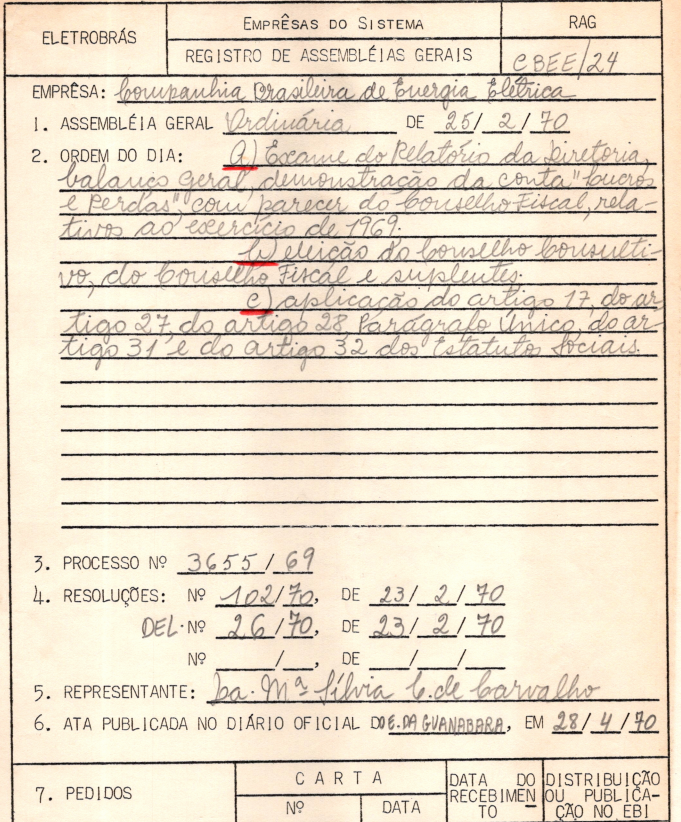 ELETROBRÁS
EMPRÊSAS DO SISTEMA
RAG
REGISTRO DE ASSEMBLÉIAS GERAIS
CBEE/24
EMPRÊSA: Companhia Brasileira de Energia Elétrica
1. ASSEMBLÉIA GERAL Ordinária DE 25/ 2 / 70
2. ORDEM DO DIA: a) Exame do Relatório da Diretoria,
balanço geral, demonstração da conta "Lucros
e Perdas", com parecer do Conselho Fiscal, rela-
tivos ao exercício de 1969.
b) eleição do Conselho Consulti-
vo, do Conselho Fiscal e suplentes.
c) aplicação do artigo 17, do ar-
tigo 27, do artigo 28, Parágrafo Único, do ar-
tigo 31 e do artigo 32 dos Estatutos Sociais.
3. PROCESSO Nº 3655 / 69
4. RESOLUÇÕES: Nº 102/70, DE 23/ 2 / 70
DEL. Nº 26 /70, DE 23/ 2 / 70
Nº / , DE / /
5. REPRESENTANTE: Mª Sílvia C. de Carvalho
6. ATA PUBLICADA NO DIÁRIO OFICIAL DO E. DA GUANABARA, EM 28/ 4 / 70
7. PEDIDOS
CARTA
Nº
DATA
DATA DO
RECEBIMEN
TO
DISTRIBUIÇÃO
OU PUBLICA-
ÇÃO NO EBI